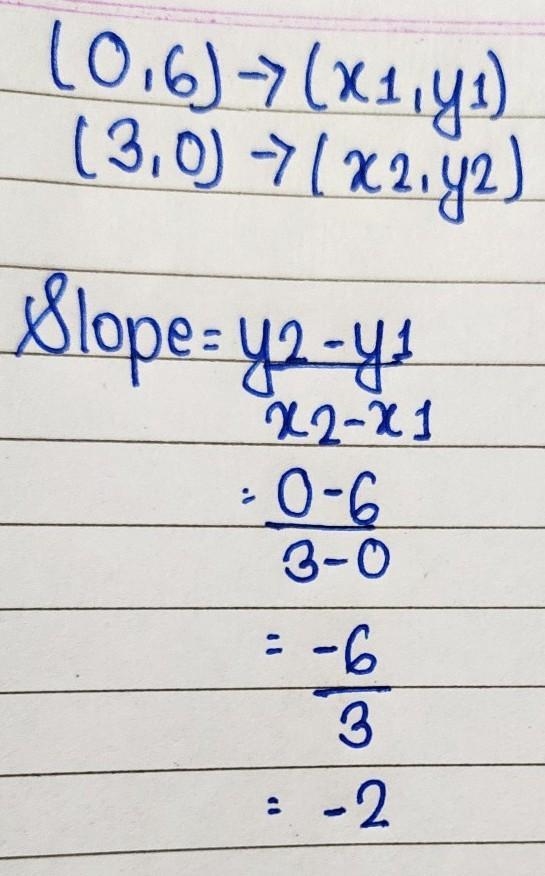 (0,6)→(x1,y1)
(3,0)→(x2,y2)
Slope=y2-y1
x2-x1
=0-6
3-0
=-6
3
=-2